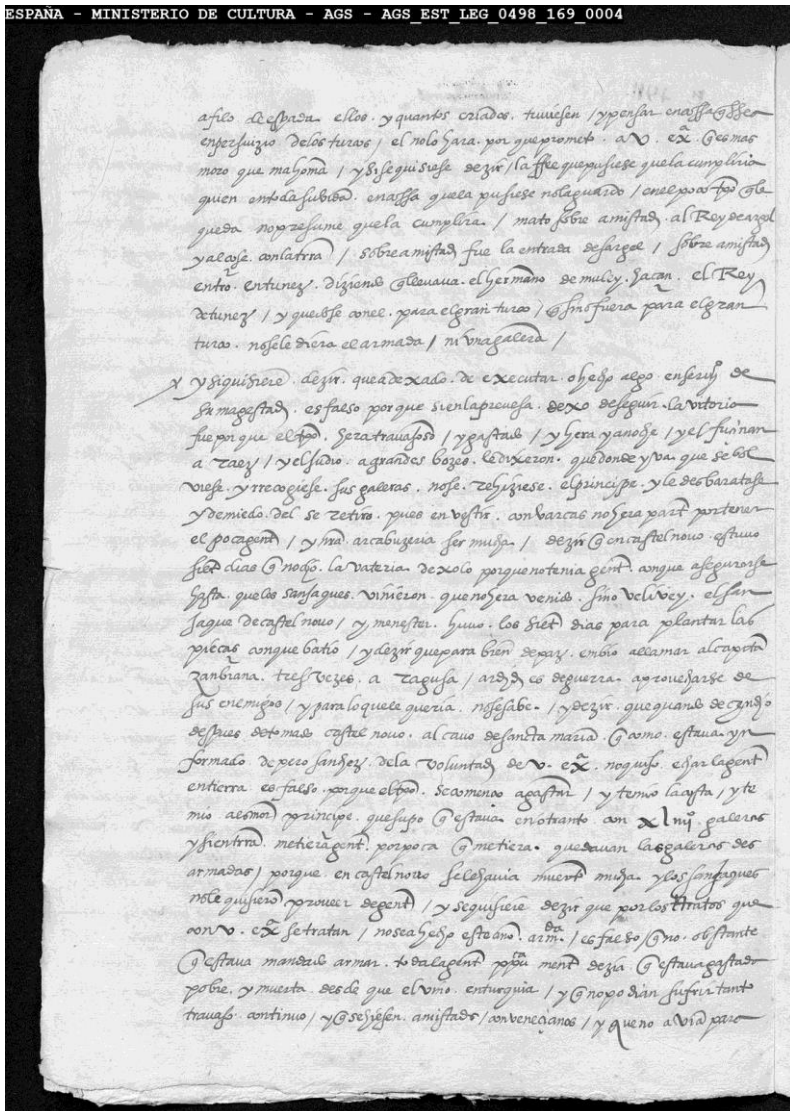 ESPAÑA - MINISTERIO DE CULTURA - AGS - AGS_EST_LEG_0498_169_0004
a filo de espada ellos y quantos criados tuviesen / y pensar
en perjuizio de los turcos / el no lo hara porque prometo a v. exa̅ q̅ es mas
moro que mahoma / y si se quisiese dezir / la ffee que pusiese que la cumpliria
quien en toda su vida que la pusiese no la guardo / en el poco tpo̅ q̅ le
queda no presume que la cumplira / mato sobre amistad al Rey de argel
y alçose con la trra̅ / sobre amistad fue la entrada de sargel / sobre amistad
entro en tunez diziendo q̅ llevava el hermano de muley hacan el Rey
de tunez / y que con el para el gran turco / q̅ si no fuera para el gran
turco no se le diera el armada / ni una galera /
y si quisiere dezir que a dexado de executar o hecho algo en servi̅o de
su magestad es falso porque si en la prevesa dexo de seguir la vitoria
fue porque el tpo̅ hera travajoso / y gastado / y hera ya noche / y el
a raez / y el judio a grandes bozes le dixeron que donde yva que se bol
viese y rrecogiese sus galeras no se rehiziese el principe y le desbaratase
y de miedo del se retiro pues en vestir con varcas no hera part̅ por tener
el poca gent̅ / y nra̅ arcabuzeria ser mucha / dezir q̅ en castelnovo estuvo
siet̅ dias q̅ no dio la vateria dexolo porque no tenia gent̅ con que asegurarse
hasta que los sanjaques vinieron que no hera venido sino velivey el san
jaque de castelnovo / y menester huvo los siet̅ dias para plantar las
pieças con que batio / y dezir que para bien de paz embio a llamar al capita̅
zanbrana tres vezes a ragusa / ardid es de guerra aprovecharse de
sus enemigos / y para lo que le queria no se sabe / y dezir que quando decendio
despues de tomado castelnovo al cavo de sancta maria q̅ como estava yn
formado de pero sanchez de la voluntad de v. exa̅ no quiso echar la gent̅
en tierra es falso porque el tpo̅ se començo a gastar / y temio la costa / y te
mio al señor principe que supo q̅ estava en otranto con galeras
y si en trra̅ metiera gent̅ por poca q̅ metiera quedavan las galeras des
armadas / porque en castelnovo se le havia muerto mucha y los sanjaques
no le quisiero̅ proveer de gent̅ / y si quisiere dezir que por los tratos que
con v. exa̅ se tratan / no se a hecho este año armda / es falso / q̅ no obstante
q̅ estava mandado armar toda la gent̅ ment̅ dezia q̅ estava gastada
pobre y muerta desde que el vino en turquia / y q̅ no podian sufrir tanto
travajo continuo / y q̅ se hiziesen amistades / con venecianos / y que no avia para